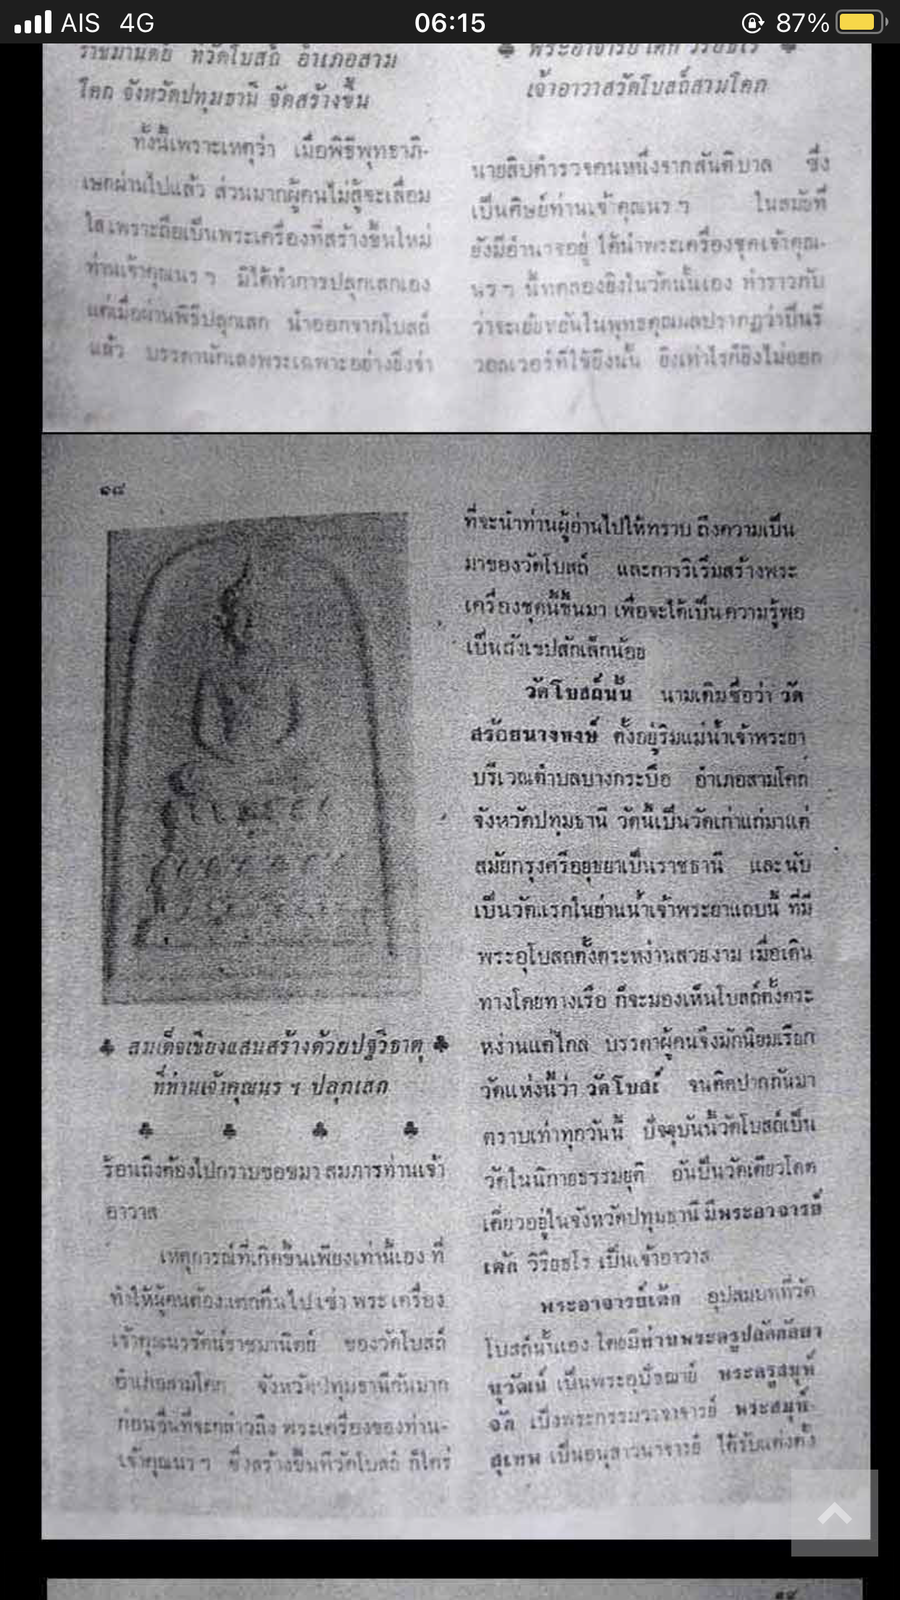 AIS 4G 06:15 87%
ราชมานิตย์ ที่วัดโบสถ์ อำเภอสาม
โคก จังหวัดปทุมธานี จัดสร้างขึ้น
ทั้งนี้เพราะเหตุว่า เมื่อพิธีพุทธาภิ-
เษกผ่านไปแล้ว ส่วนมากผู้คนไม่สู้จะเลื่อม
ใส เพราะถือเป็นพระเครื่องที่สร้างขึ้นใหม่
ท่านเจ้าคุณนร ฯ มิได้ทำการปลุกเสกเอง
แต่เมื่อผ่านพิธีปลุกเสก นำออกจากโบสถ์
แล้ว บรรดานักเลงพระเฉพาะอย่างยิ่งจ่า
พระอาจารย์เด้ก วิริยธโร
เจ้าอาวาสวัดโบสถ์สามโคก
นายสิบตำรวจคนหนึ่งจากสันติบาล ซึ่ง
เป็นศิษย์ท่านเจ้าคุณนร ฯ ในสมัยที่
ยังมีอำนาจอยู่ ได้นำพระเครื่องชุดเจ้าคุณ-
นร ฯ นี้ทดลองยิงในวัดนั้นเอง ทำราวกับ
ว่าจะเย้ยหยันในพุทธคุณผลปรากฏว่าปืนรี
วอลเวอร์ที่ใช้ยิงนั้น ยิงเท่าไรก็ยิงไม่ออก
๑๘
♣ สมเด็จเชียงแสนสร้างด้วยปฐวีธาตุ ♣
ที่ท่านเจ้าคุณนร ฯ ปลุกเสก
ร้อนถึงต้องไปกราบขอขมา สมภารท่านเจ้า
อาวาส
เหตุการณ์ที่เกิดขึ้นเพียงเท่านี้เอง ที่
ทำให้ผู้คนต้องแตกตื่นไปเช่า พระเครื่อง
เจ้าคุณนรรัตน์ราชมานิตย์ ของวัดโบสถ์
อำเภอสามโคก จังหวัดปทุมธานีกันมาก
ก่อนอื่นที่จะกล่าวถึง พระเครื่องของท่าน-
เจ้าคุณนร ฯ ซึ่งสร้างขึ้นที่วัดโบสถ์ ก็ใคร่
ที่จะนำท่านผู้อ่านไปให้ทราบ ถึงความเป็น
มาของวัดโบสถ์ และการริเริ่มสร้างพระ
เครื่องชุดนี้ขึ้นมา เพื่อจะได้เป็นความรู้พอ
เป็นสังเขปสักเล็กน้อย
วัดโบสถ์นั้น นามเดิมชื่อว่า วัด
สร้อยนางหงษ์ ตั้งอยู่ริมแม่น้ำเจ้าพระยา
บริเวณตำบลบางกระบือ อำเภอสามโคก
จังหวัดปทุมธานี วัดนี้เป็นวัดเก่าแก่มาแต่
สมัยกรุงศรีอยุธยาเป็นราชธานี และนับ
เป็นวัดแรกในย่านน้ำเจ้าพระยาแถบนี้ ที่มี
พระอุโบสถตั้งตระหง่านสวยงาม เมื่อเดิน
ทางโดยทางเรือ ก็จะมองเห็นโบสถ์ตั้งตระ
หง่านแต่ไกล บรรดาผู้คนจึงมักนิยมเรียก
วัดแห่งนี้ว่า วัดโบสถ์ จนติดปากกันมา
ตราบเท่าทุกวันนี้ ปัจจุบันนี้วัดโบสถ์เป็น
วัดในนิกายธรรมยุติ อันเป็นวัดเดียวโดด
เดี่ยวอยู่ในจังหวัดปทุมธานี มีพระอาจารย์
เด้ก วิริยธโร เป็นเจ้าอาวาส
พระอาจารย์เด้ก อุปสมบทที่วัด
โบสถ์นั้นเอง โดยมีท่านพระครูปลัดกัลยา
นุวัฒน์ เป็นพระอุปัชฌาย์ พระครูสมุห์
จัด เป็นพระกรรมวาจาจารย์ พระสมุห์-
สุเทพ เป็นอนุสาวนาจารย์ ได้รับแต่งตั้ง
๑๙